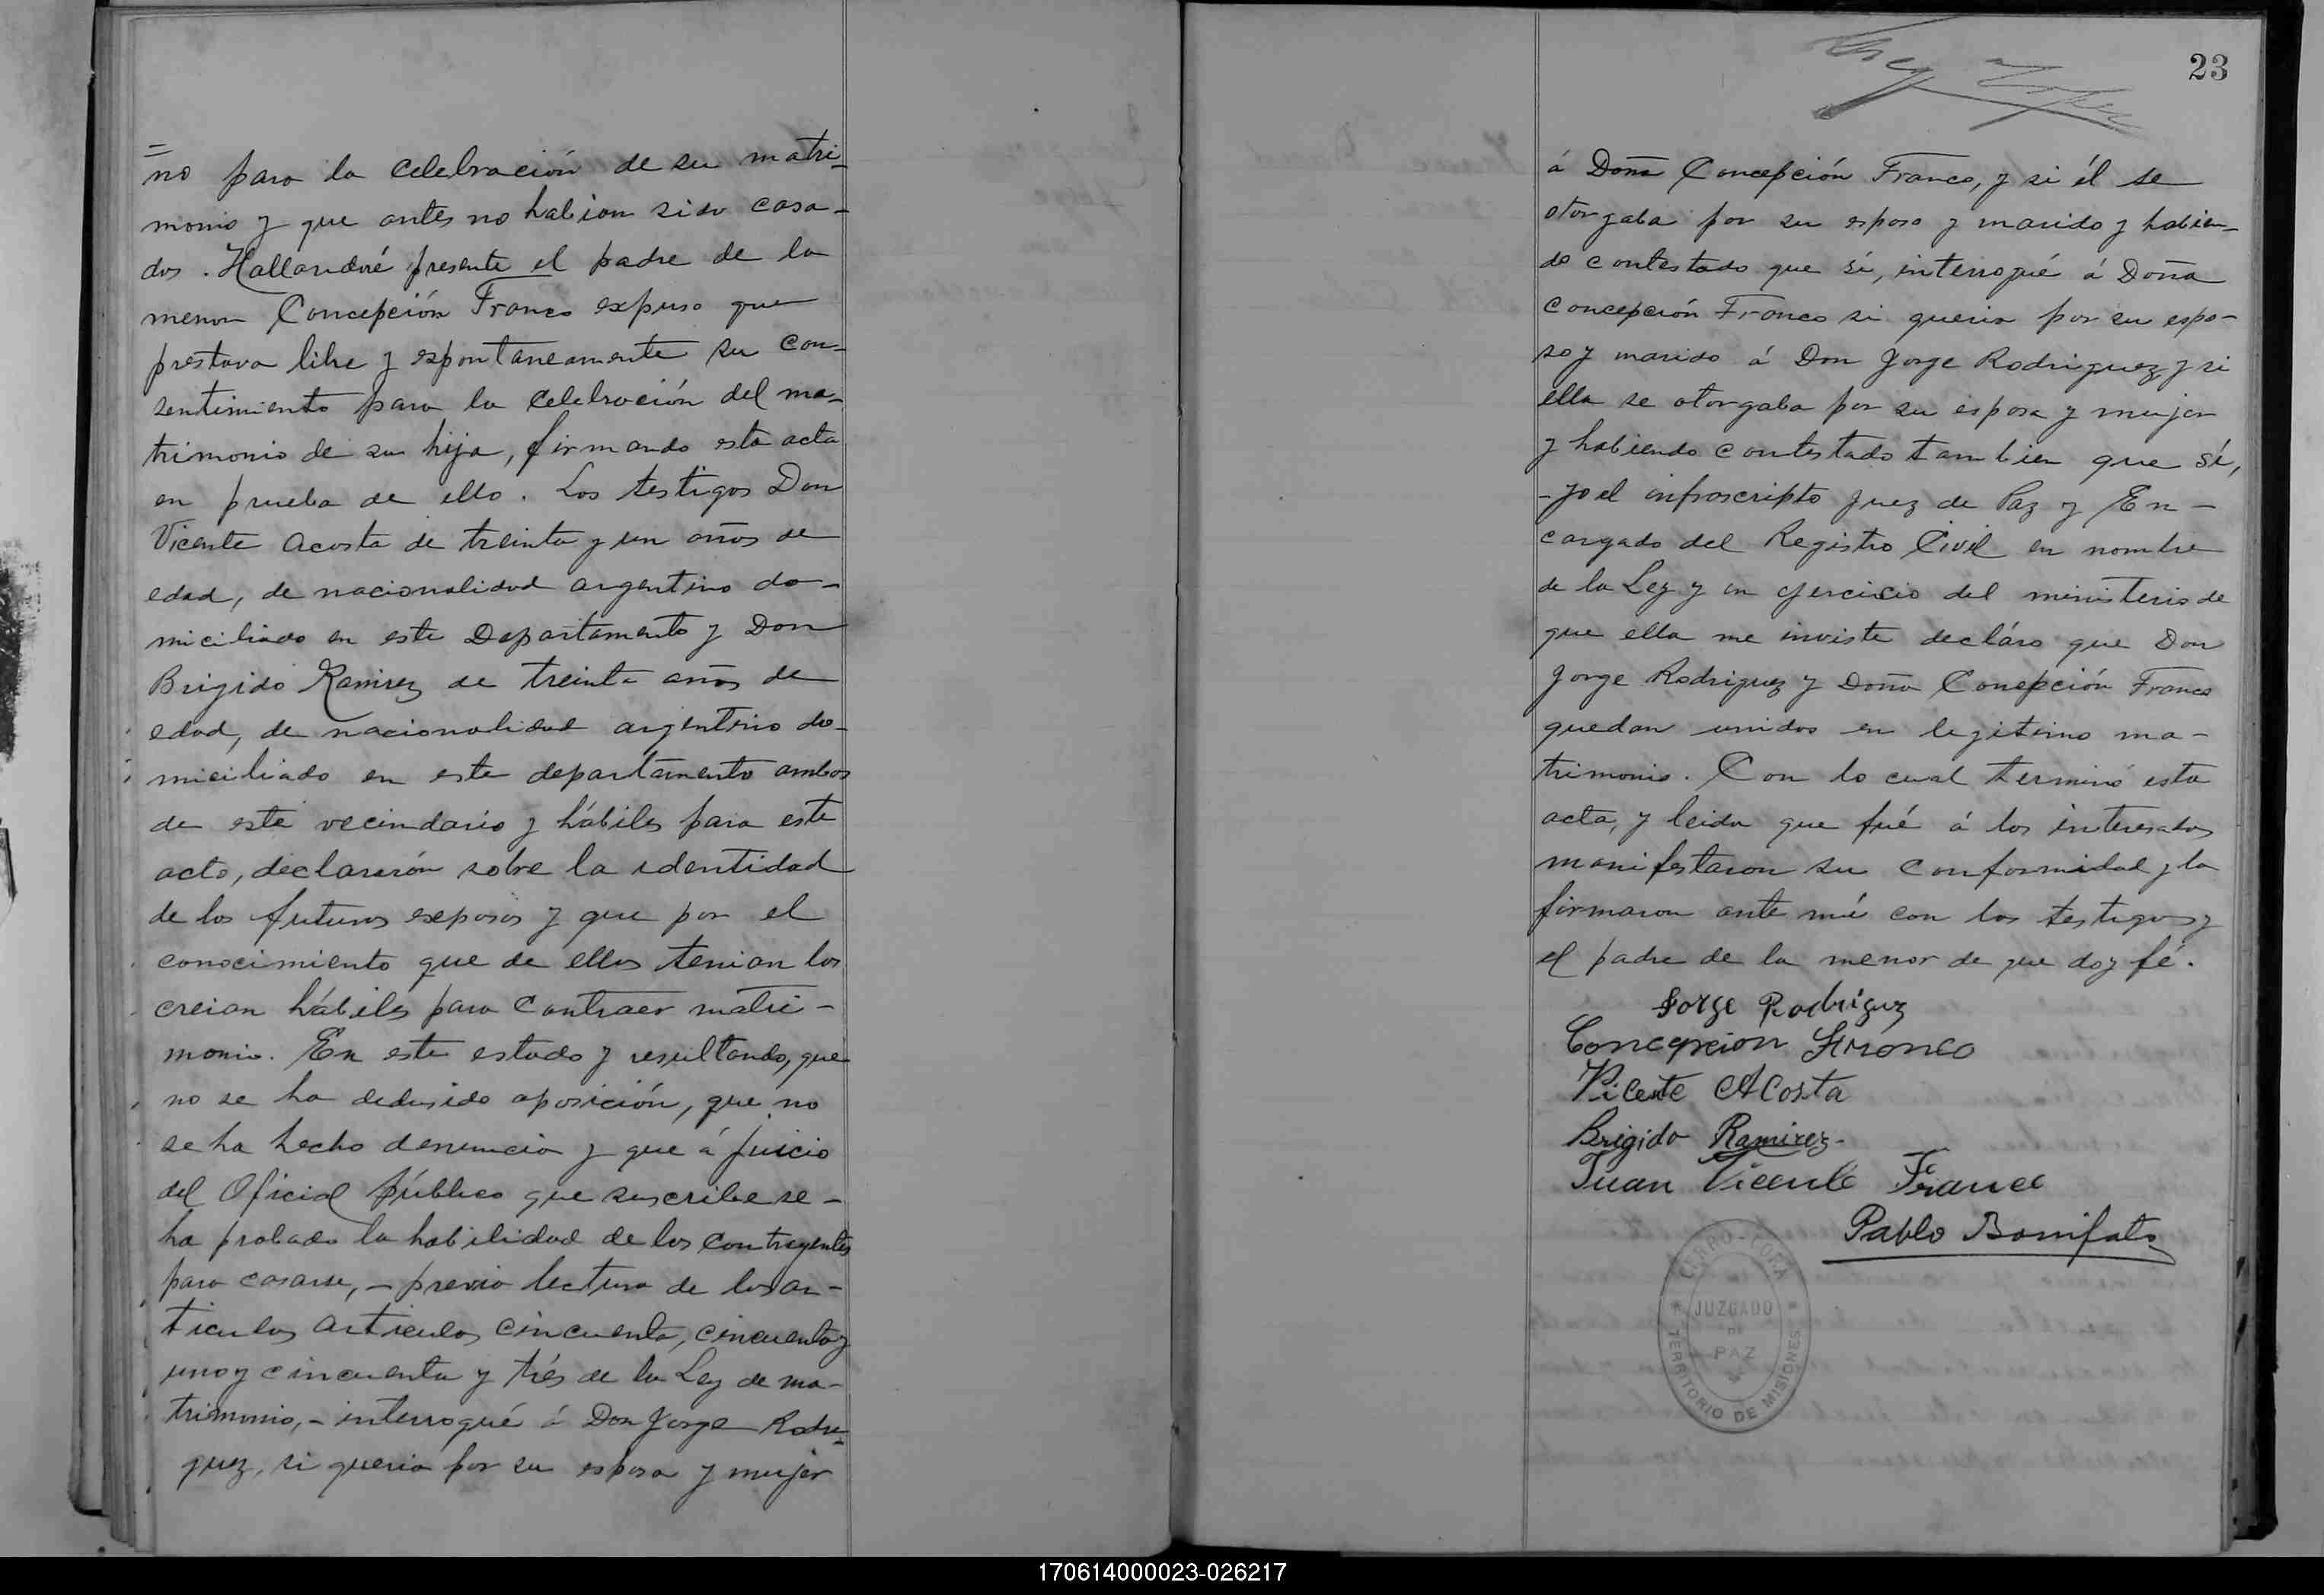 =
no para la celebración de su matri=
monio y que antes no habian sido casa-
dos. Hallandoré presente el padre de la
menor Concepción Franco expuso que
prestava libre y espontaneamente su con-
sentimiento para la celebración del ma-
trimonio de su hija, firmando esta acta
en prueba de ello. Los testigos Don
Vicente Acosta de treinta y un años de
edad, de nacionalidad argentino do-
miciliado en este Departamento y Don
Brigido Ramirez de treinta años de
edad, de nacionalidad argentino do-
miciliado en este departamento ambos
de este vecindario y hábiles para este
acto, declararón sobre la identidad
de los futuros exposos y que por el
conocimiento que de ellos tenian los
creian hábiles para contraer matri-
monio. En este estado y resultando, que
no se ha dedusido oposición, que no
se ha hecho denuncia y que á juicio
del Oficial público que suscribe se-
ha probado la habilidad de los contrayentes
para casarse, - previa lectura de los ar-
ticulos articulos cincuenta, cincuenta y
uno y cincuenta y trés de la Ley de ma-
trimonio, - interrogué á Don Jorge Rodri=
guez, si queria por su esposa y mujer
23
á Doña Concepción Franco, y si él se
otorgaba por su esposo y marido y habien-
do contestado que si, interrogué á Doña
Concepción Franco si queria por su espo-
so y marido á Don Jorge Rodriguez y si
ella se otorgaba por su esposa y mujer
y habiendo contestado tambien que sí,
- yo el infrascripto Juez de Paz y En-
cargado del Registro Civil en nombre
de la Ley y en ejercicio del ministerio de
que ella me inviste decláro que Don
Jorge Rodriguez y Doña Concepción Franco
quedan unidos en legitimo ma-
trimonio. Con lo cual terminó esta
acta, y leida que fué á los interesados
manifestaron su conformidad y la
firmaron ante mi con los testigos y
el padre de la menor de que doy fé.
Jorge Rodriguz
Concepcion Franco
Vicente Acosta
Brigido Ramirez-
Juan Vicente Franco
Pablo Bonifato
CERRO-CORÁ
JUZGADO
DE
PAZ
TERRITORIO DE MISIONES
170614000023-026217